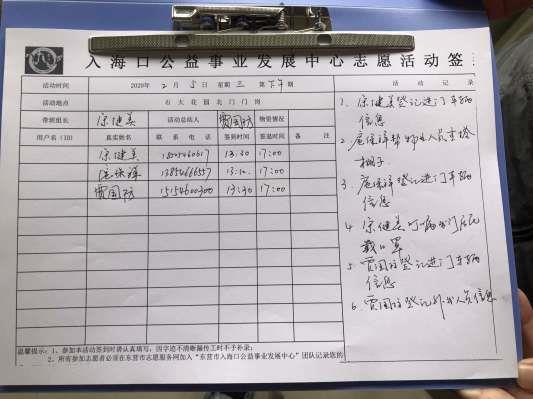 入海口公益事业发展中心志愿活动签
活动时间 2020年 2月 5日 星期 三 第 下午 期
活动地点 石大花园北门门岗
带班组长 徐健美 活动总结人 贾国防 物资情况
用户名(ID) 真实姓名 联系电话 签到时间 签退时间 备注
徐健美 13:30 17:00
13854666557 13:30 17:00
贾国防 15154600300 13:30 17:00
温馨提示：1、参加本活动签到时请认真填写，因字迹不清断漏传工时不予补录；
2、所有参加志愿者必须在东营市志愿服务网加入“东营市入海口公益事业发展中心”团队记录您的
活动记录
1、徐健美登记进门车辆
信息
2、帮物业人员搭
棚子.
3、登记进门车辆
信息
4、徐健美叮嘱出门居民
戴口罩
5、贾国防登记进门车辆
信息
6、贾国防登记外出人员信息